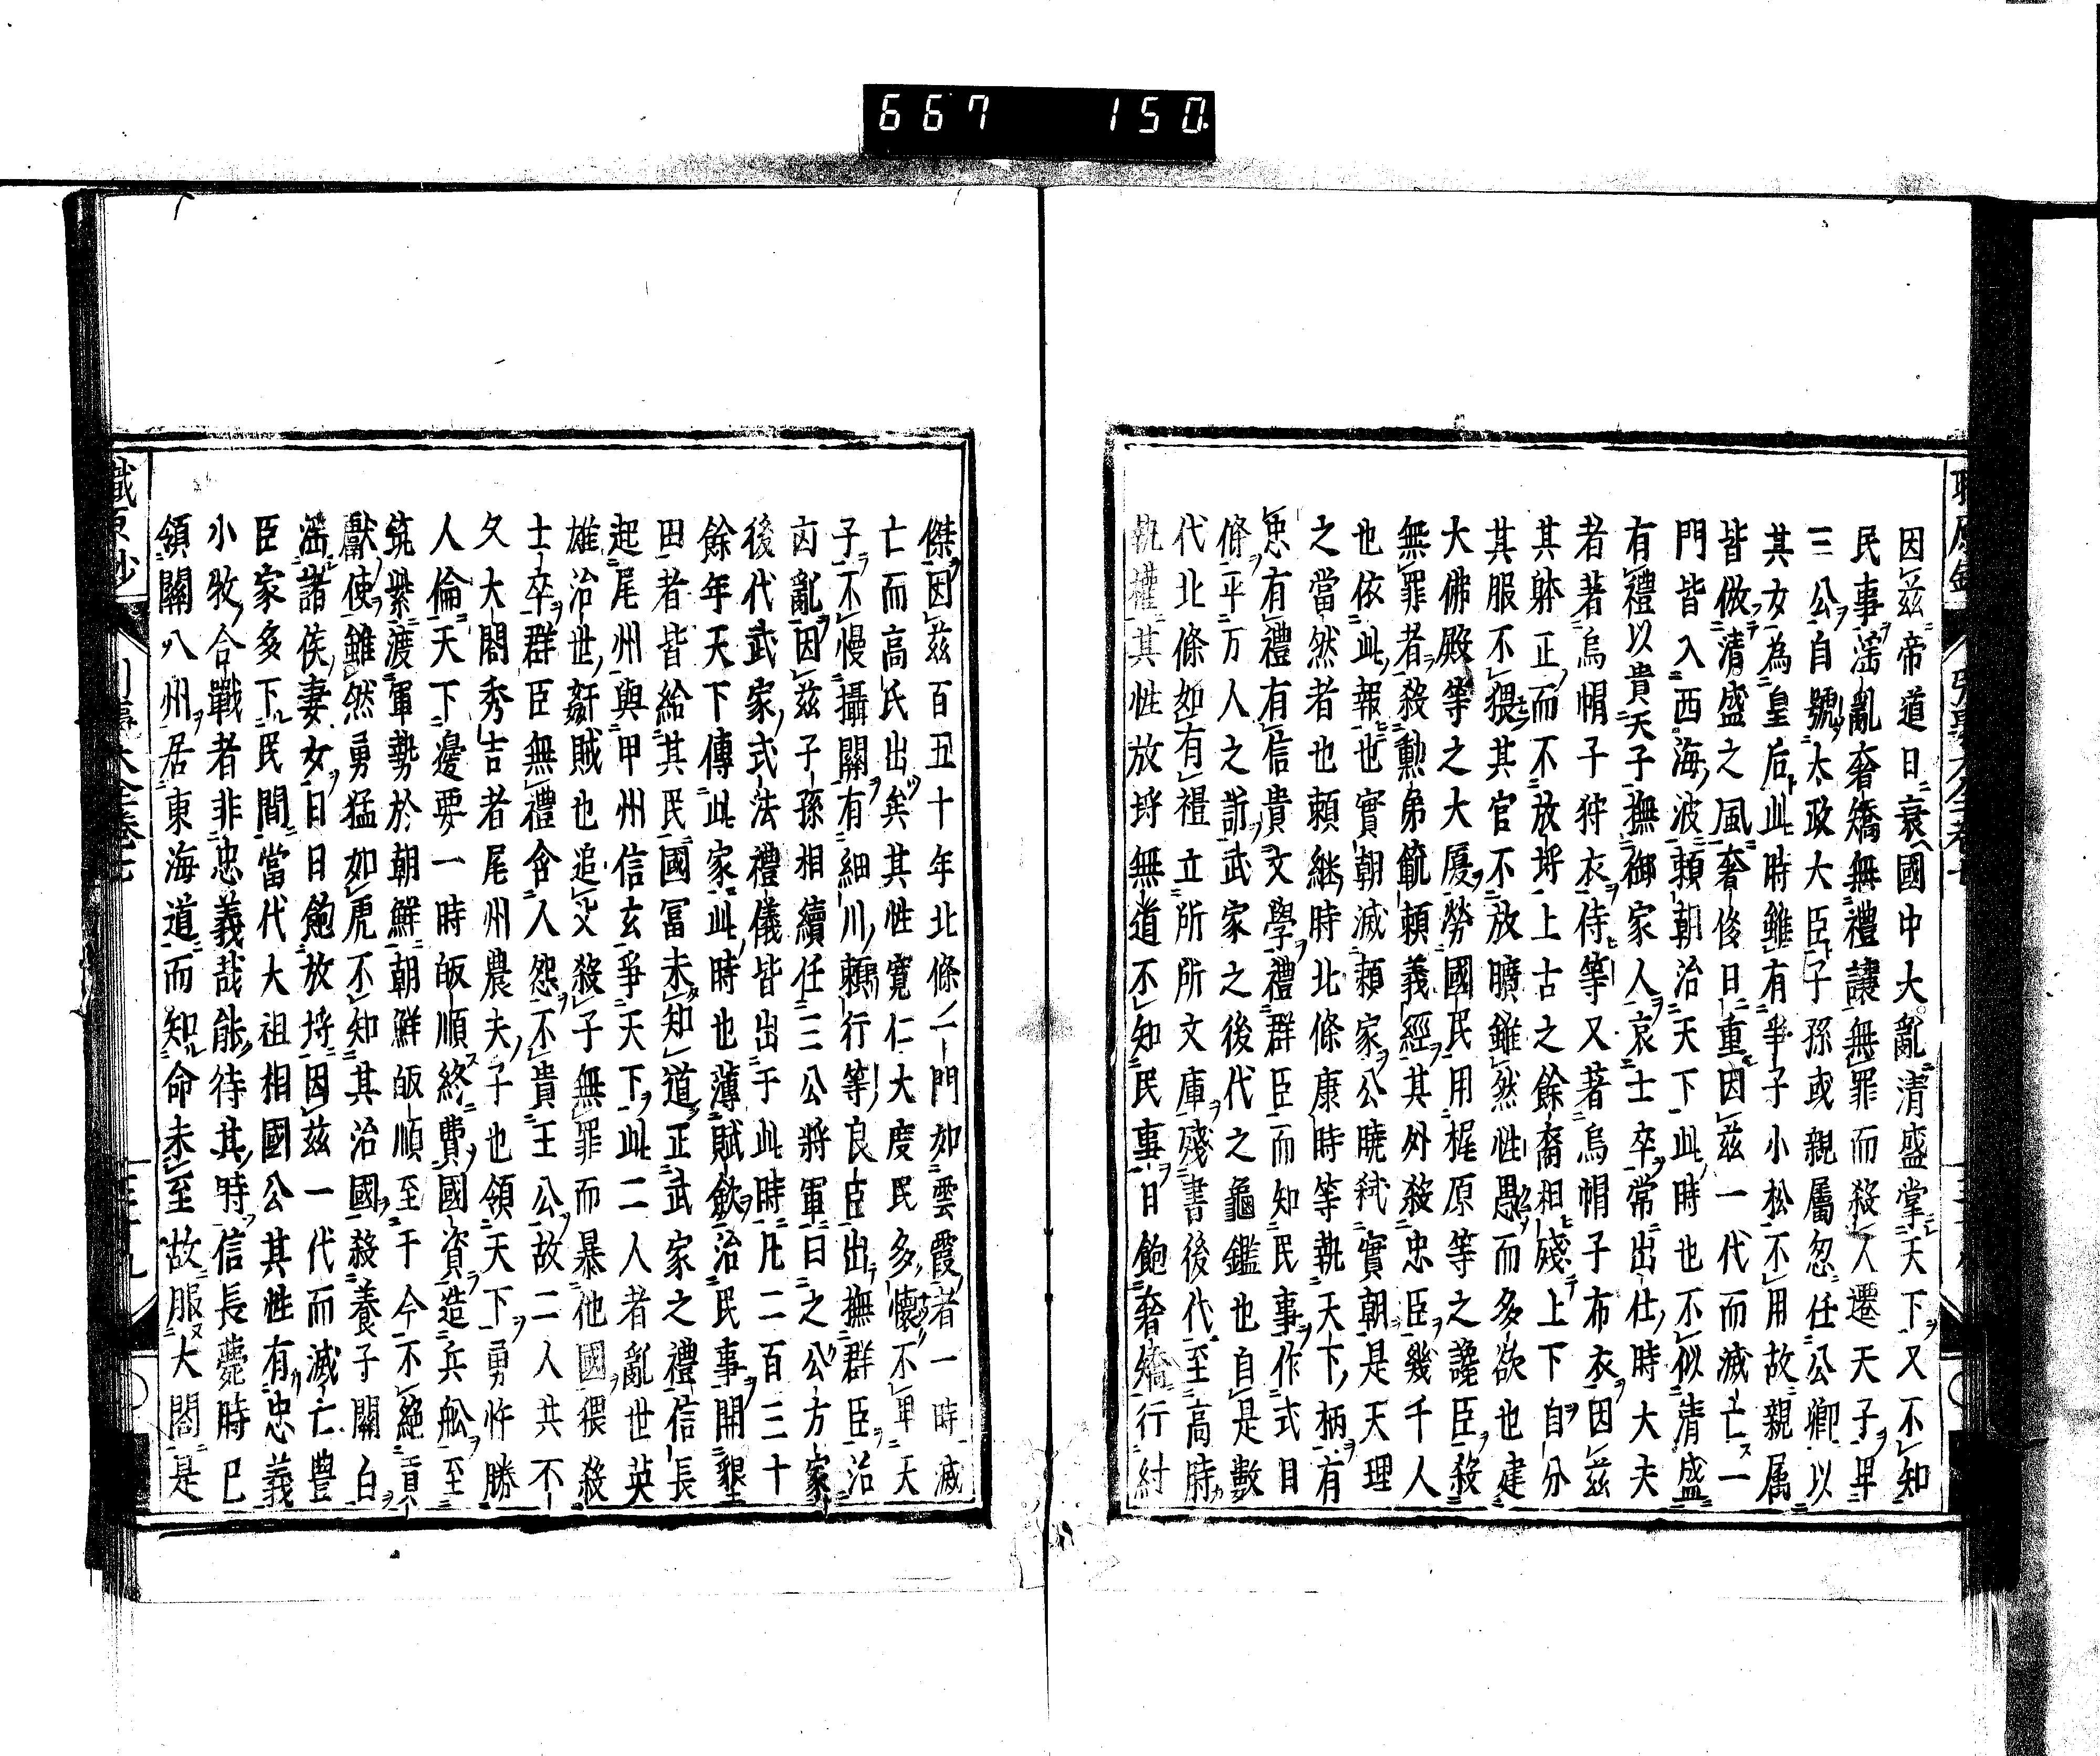 667 150
因茲帝道日衰國中大亂清盛掌天下又不知
民事滛亂奢矯無禮讓無罪而殺人遷天子卑
三公自號太政大臣子孫或親屬忽任公卿以
其女為皇后此時雖有爭子小松不用故親属
皆倣清盛之風奢侈日重因茲一代而滅亡一
門皆入西海波頼朝治天下此時也不似清盛
有禮以貴天子撫御家人哀士卒常出仕時大夫
者著烏帽子狩衣侍等又著烏帽子布衣因茲
其躰正而不放埒上古之餘裔相殘上下自分
其服不猥其官不放曠雖然性愚而多欲也建
大佛殿等之大厦勞國民用梶原等之讒臣殺
無罪者殺勲弟範頼義經其外殺忠臣幾千人
也依此報也實朝滅頼家公曉弑實朝是天理
之當然者也頼継時北條康時等執天下柄有
忠有禮有信貴文學禮群臣而知民事作式目
條平万人之訴武家之後代之龜鑑也自是數
代北條如有禮立所所文庫殘書後代至高時
執權其性放埒無道不知民事日飽奢矯行紂
傑因茲百五十年北條一門如雲霞者一時滅
亡而高氏出矣其性寛仁大度民多懷不卑天
子不慢攝關有細川頼行等良臣出撫群臣治
凶亂因茲子孫相續任三公將軍曰之公方家
後代武家式法禮儀皆出于此時凡二百三十
餘年天下傳此家此時也薄賦歛治民事開墾
田者皆給其民國冨未知道正武家之禮信長
起尾州與甲州信玄爭天下此二人者亂世英
雄治世姧賊也追父殺子無罪而暴他國猥殺
士卒群臣無禮含人怨不貴王公故二人共不
久大閤秀吉者尾州農夫子也領天下勇忰勝
人倫天下邊要一時皈順終費國資造兵舩至
筑紫渡軍勢於朝鮮朝鮮皈順至于今不絕貢
獻使雖然勇猛如虎不知其治國殺養子關白
滛諸侯妻女日日飽放埒因茲一代而滅亡豊
臣家多下民間當代大祖相國公其性有忠義
小牧合戰者非忠義哉能待其時信長薨時已
領關八州居東海道而知命未至故服大閤是